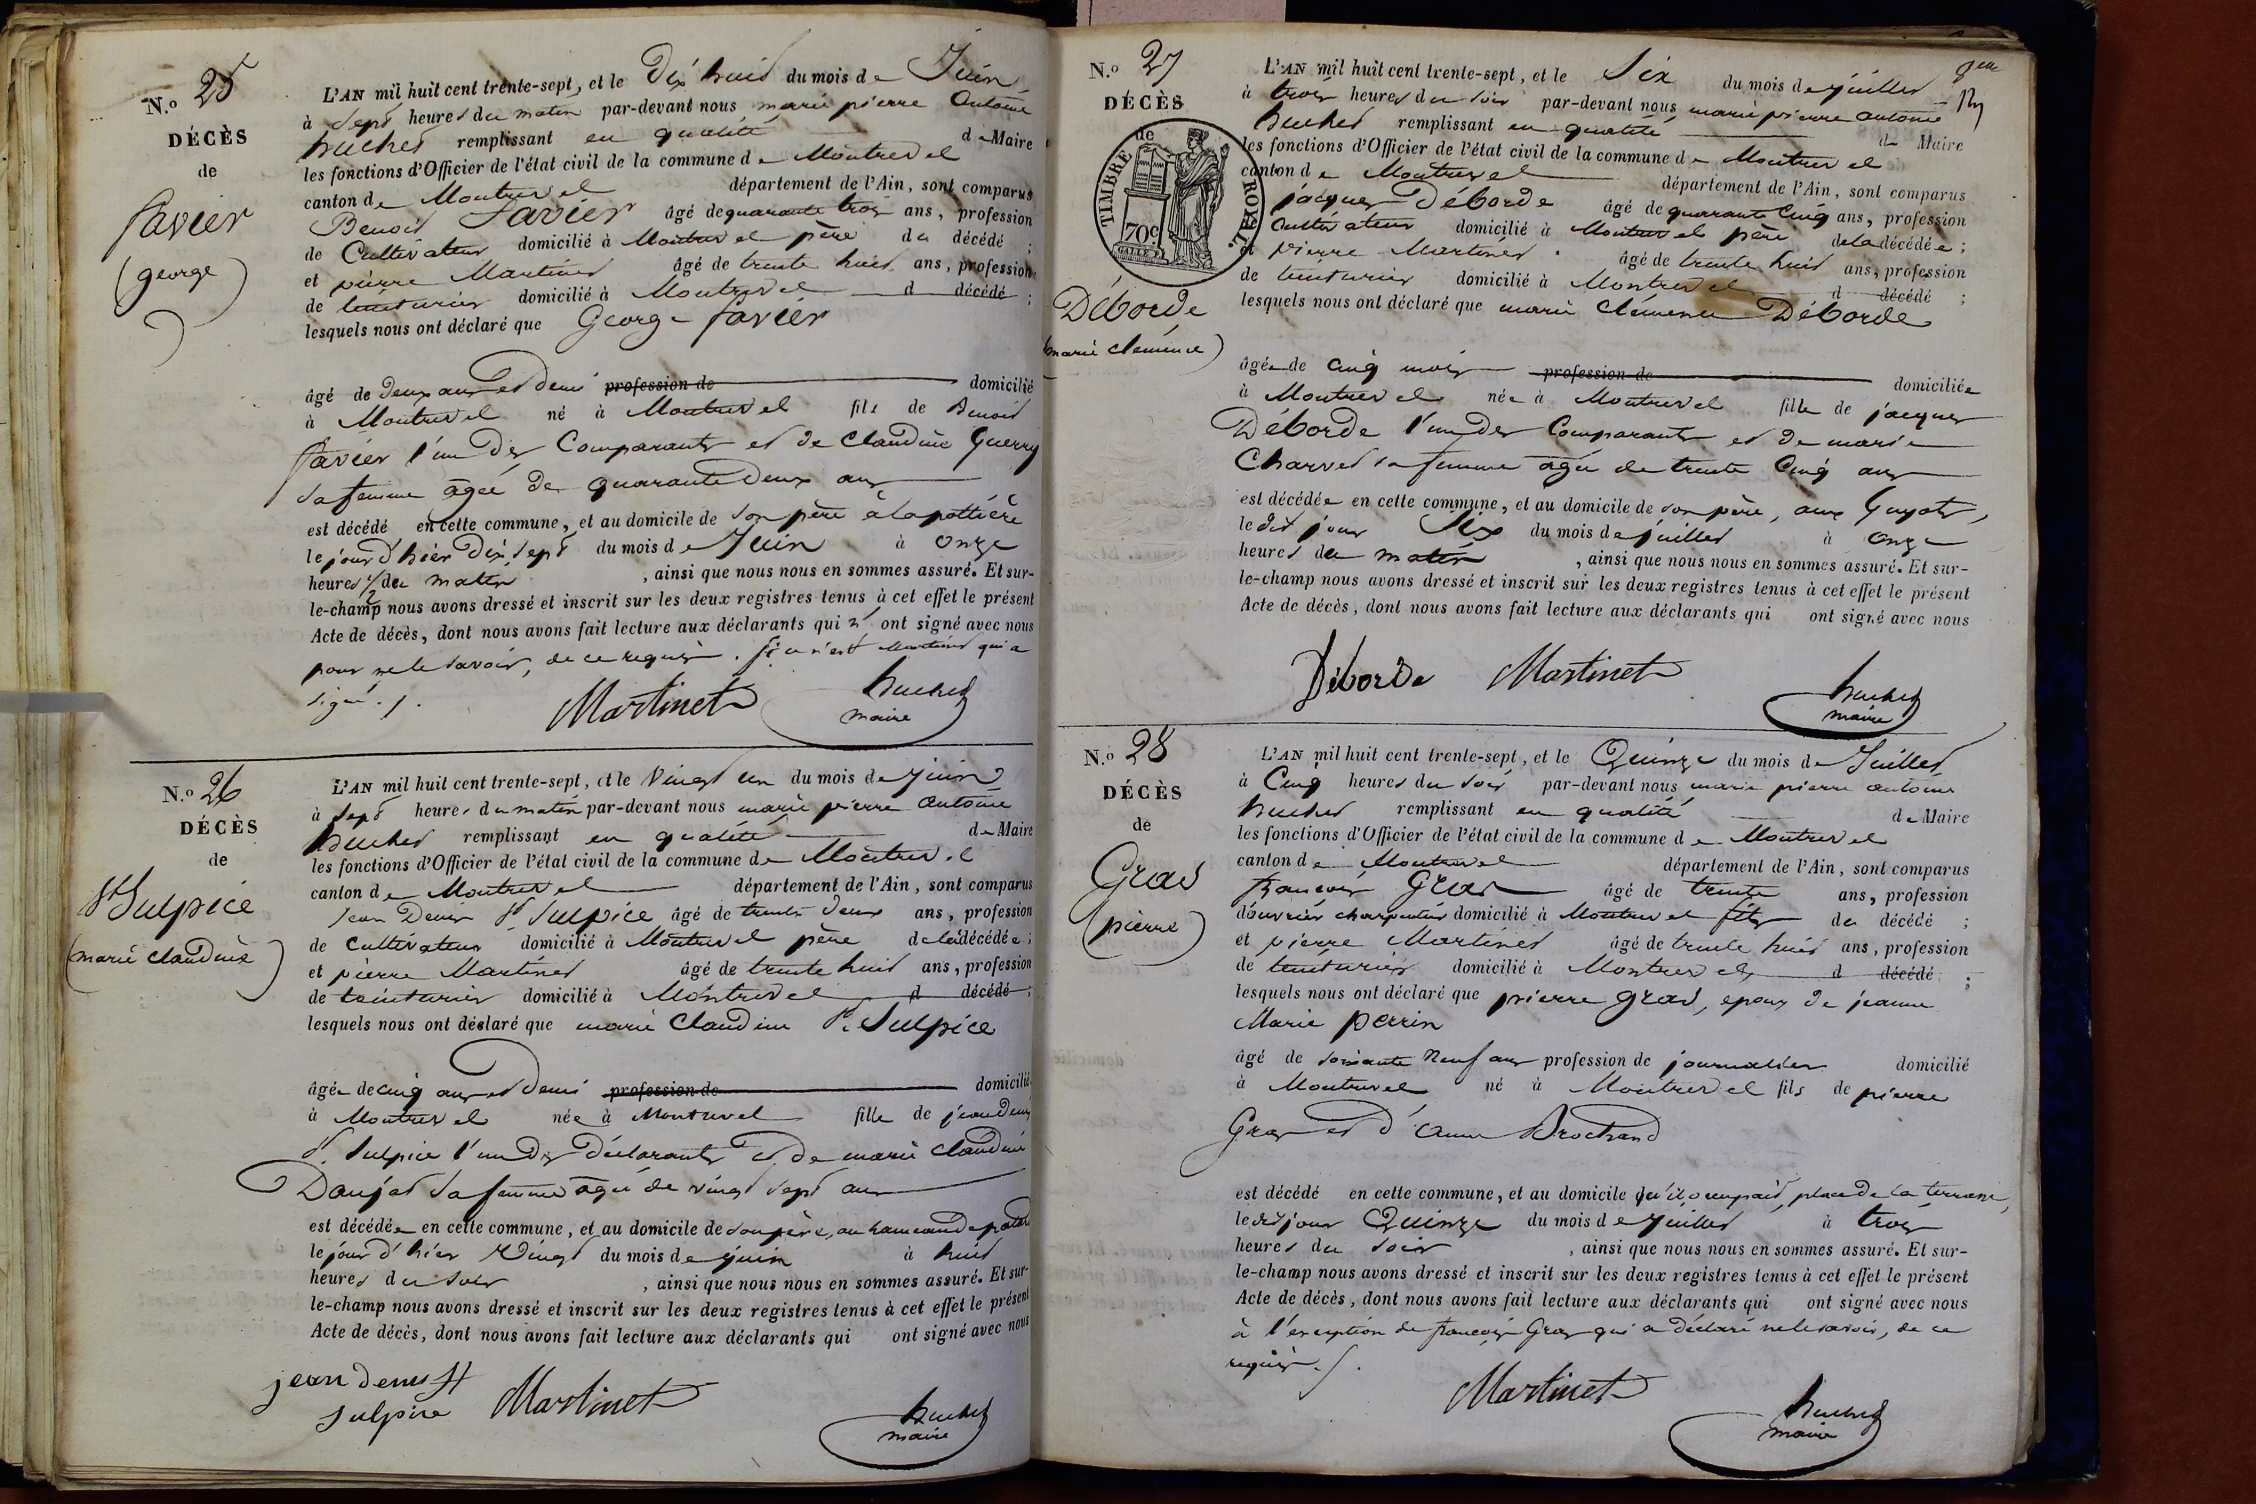 N.o 25
DÉCÈS
de
favier
(george)
L'AN mil huit cent trente-sept, et le Dix huit du mois de Juin
à Sept heures du matin par-devant nous marie pierre Antoine
huchet remplissant en qualité de Maire
les fonctions d'Officier de l'état civil de la commune de Montrevel
canton de Montrevel département de l'Ain, sont comparus
Benoit favier âgé de quarante trois ans, profession
de Cultivateur domicilié à Montrevel père du décédé ;
et pierre Martinet âgé de trente huit ans, profession
de teinturier domicilié à Montrevel d décédé ;
lesquels nous ont déclaré que George favier
âgé de Deux ans et demi profession de domicilié
à Montrevel né à Montrevel fils de Benoit
favier l'un des Comparants et de Claudine Guerry
sa femme âgée de quarante Deux ans
est décédé en cette commune, et au domicile de son père à la pottière
le jour d'hier Dix sept du mois de Juin à onze
heures 1/2 du matin , ainsi que nous nous en sommes assuré. Et sur-
le-champ nous avons dressé et inscrit sur les deux registres tenus à cet effet le présent
Acte de décès, dont nous avons fait lecture aux déclarants qui n' ont signé avec nous
pour ne le savoir, de ce requis. si ce n'est Martinet qui a
signé ./.
Martinet huchet
maire
N.o 26
DÉCÈS
de
St Sulpice
(marie claudine)
L'AN mil huit cent trente-sept, et le Vingt un du mois de juin
à sept heures du matin par-devant nous marie pierre antoine
huchet remplissant en qualité de Maire
les fonctions d'Officier de l'état civil de la commune de Montrevel
canton de Montrevel département de l'Ain, sont comparus
Jean Denis St Sulpice âgé de trente deux ans, profession
de cultivateur domicilié à Montrevel père de la décédée ;
et pierre Martinet âgé de trente huit ans, profession
de teinturier domicilié à Montrevel d décédé ;
lesquels nous ont déclaré que marie Claudine St Sulpice
âgée de cinq ans et demi profession de domicilié
à Montrevel née à Montrevel fille de jean denis
St Sulpice l'un des déclarants et de marie claudine
Danjat sa femme âgée de vingt sept ans
est décédée en cette commune, et au domicile de son père, au hameau de
le jour d'hier Vingt du mois de juin à huit
heures du soir , ainsi que nous nous en sommes assuré. Et sur-
le-champ nous avons dressé et inscrit sur les deux registres tenus à cet effet le présent
Acte de décès, dont nous avons fait lecture aux déclarants qui ont signé avec nous
jean denis st
sulpice Martinet huchet
maire
N.o 27
DÉCÈS
de
TIMBRE ROYAL.
70c
Déborde
(marie clémence)
L'AN mil huit cent trente-sept, et le Six du mois de juillet
à trois heures du soir par-devant nous marie pierre antoine
huchet remplissant en qualité de Maire
les fonctions d'Officier de l'état civil de la commune de Montrevel
canton de Montrevel département de l'Ain, sont comparus
jacques Déborde âgé de quarante Cinq ans, profession
cultivateur domicilié à Montrevel père de la décédée ;
et pierre Martinet âgé de trente huit ans, profession
de teinturier domicilié à Montrevel d décédé ;
lesquels nous ont déclaré que marie Clémence Déborde
âgée de cinq mois profession de domiciliée
à Montrevel née à Montrevel fille de jacques
Déborde l'un des Comparants et de marie
Charvet sa femme âgée de trente Cinq ans
est décédée en cette commune, et au domicile de son père, aux Guyots,
le dit jour Six du mois de juillet à onze
heures du matin , ainsi que nous nous en sommes assuré. Et sur-
le-champ nous avons dressé et inscrit sur les deux registres tenus à cet effet le présent
Acte de décès, dont nous avons fait lecture aux déclarants qui ont signé avec nous
Déborde Martinet huchet
maire
N.o 28
DÉCÈS
de
Gras
(pierre)
L'AN mil huit cent trente-sept, et le Quinze du mois de Juillet
à Cinq heures du soir par-devant nous marie pierre antoine
huchet remplissant en qualité de Maire
les fonctions d'Officier de l'état civil de la commune de Montrevel
canton de Montrevel département de l'Ain, sont comparus
françois Gras âgé de trente ans, profession
d'ouvrier charpentier domicilié à Montrevel fils du décédé ;
et pierre Martinet âgé de trente huit ans, profession
de teinturier domicilié à Montrevel d décédé ;
lesquels nous ont déclaré que pierre Gras, epoux de jeanne
Marie perrin
âgé de soixante neuf ans profession de journalier domicilié
à Montrevel né à Montrevel fils de pierre
Gras et d'Anne Brochand
est décédé en cette commune, et au domicile qu'il occupait, place de la terrasse,
le dit jour Quinze du mois de juillet à trois
heures du soir , ainsi que nous nous en sommes assuré. Et sur-
le-champ nous avons dressé et inscrit sur les deux registres tenus à cet effet le présent
Acte de décès, dont nous avons fait lecture aux déclarants qui ont signé avec nous
à l'exception de françois Gras qui a déclaré ne le savoir, de ce
requis ./.
Martinet huchet
maire